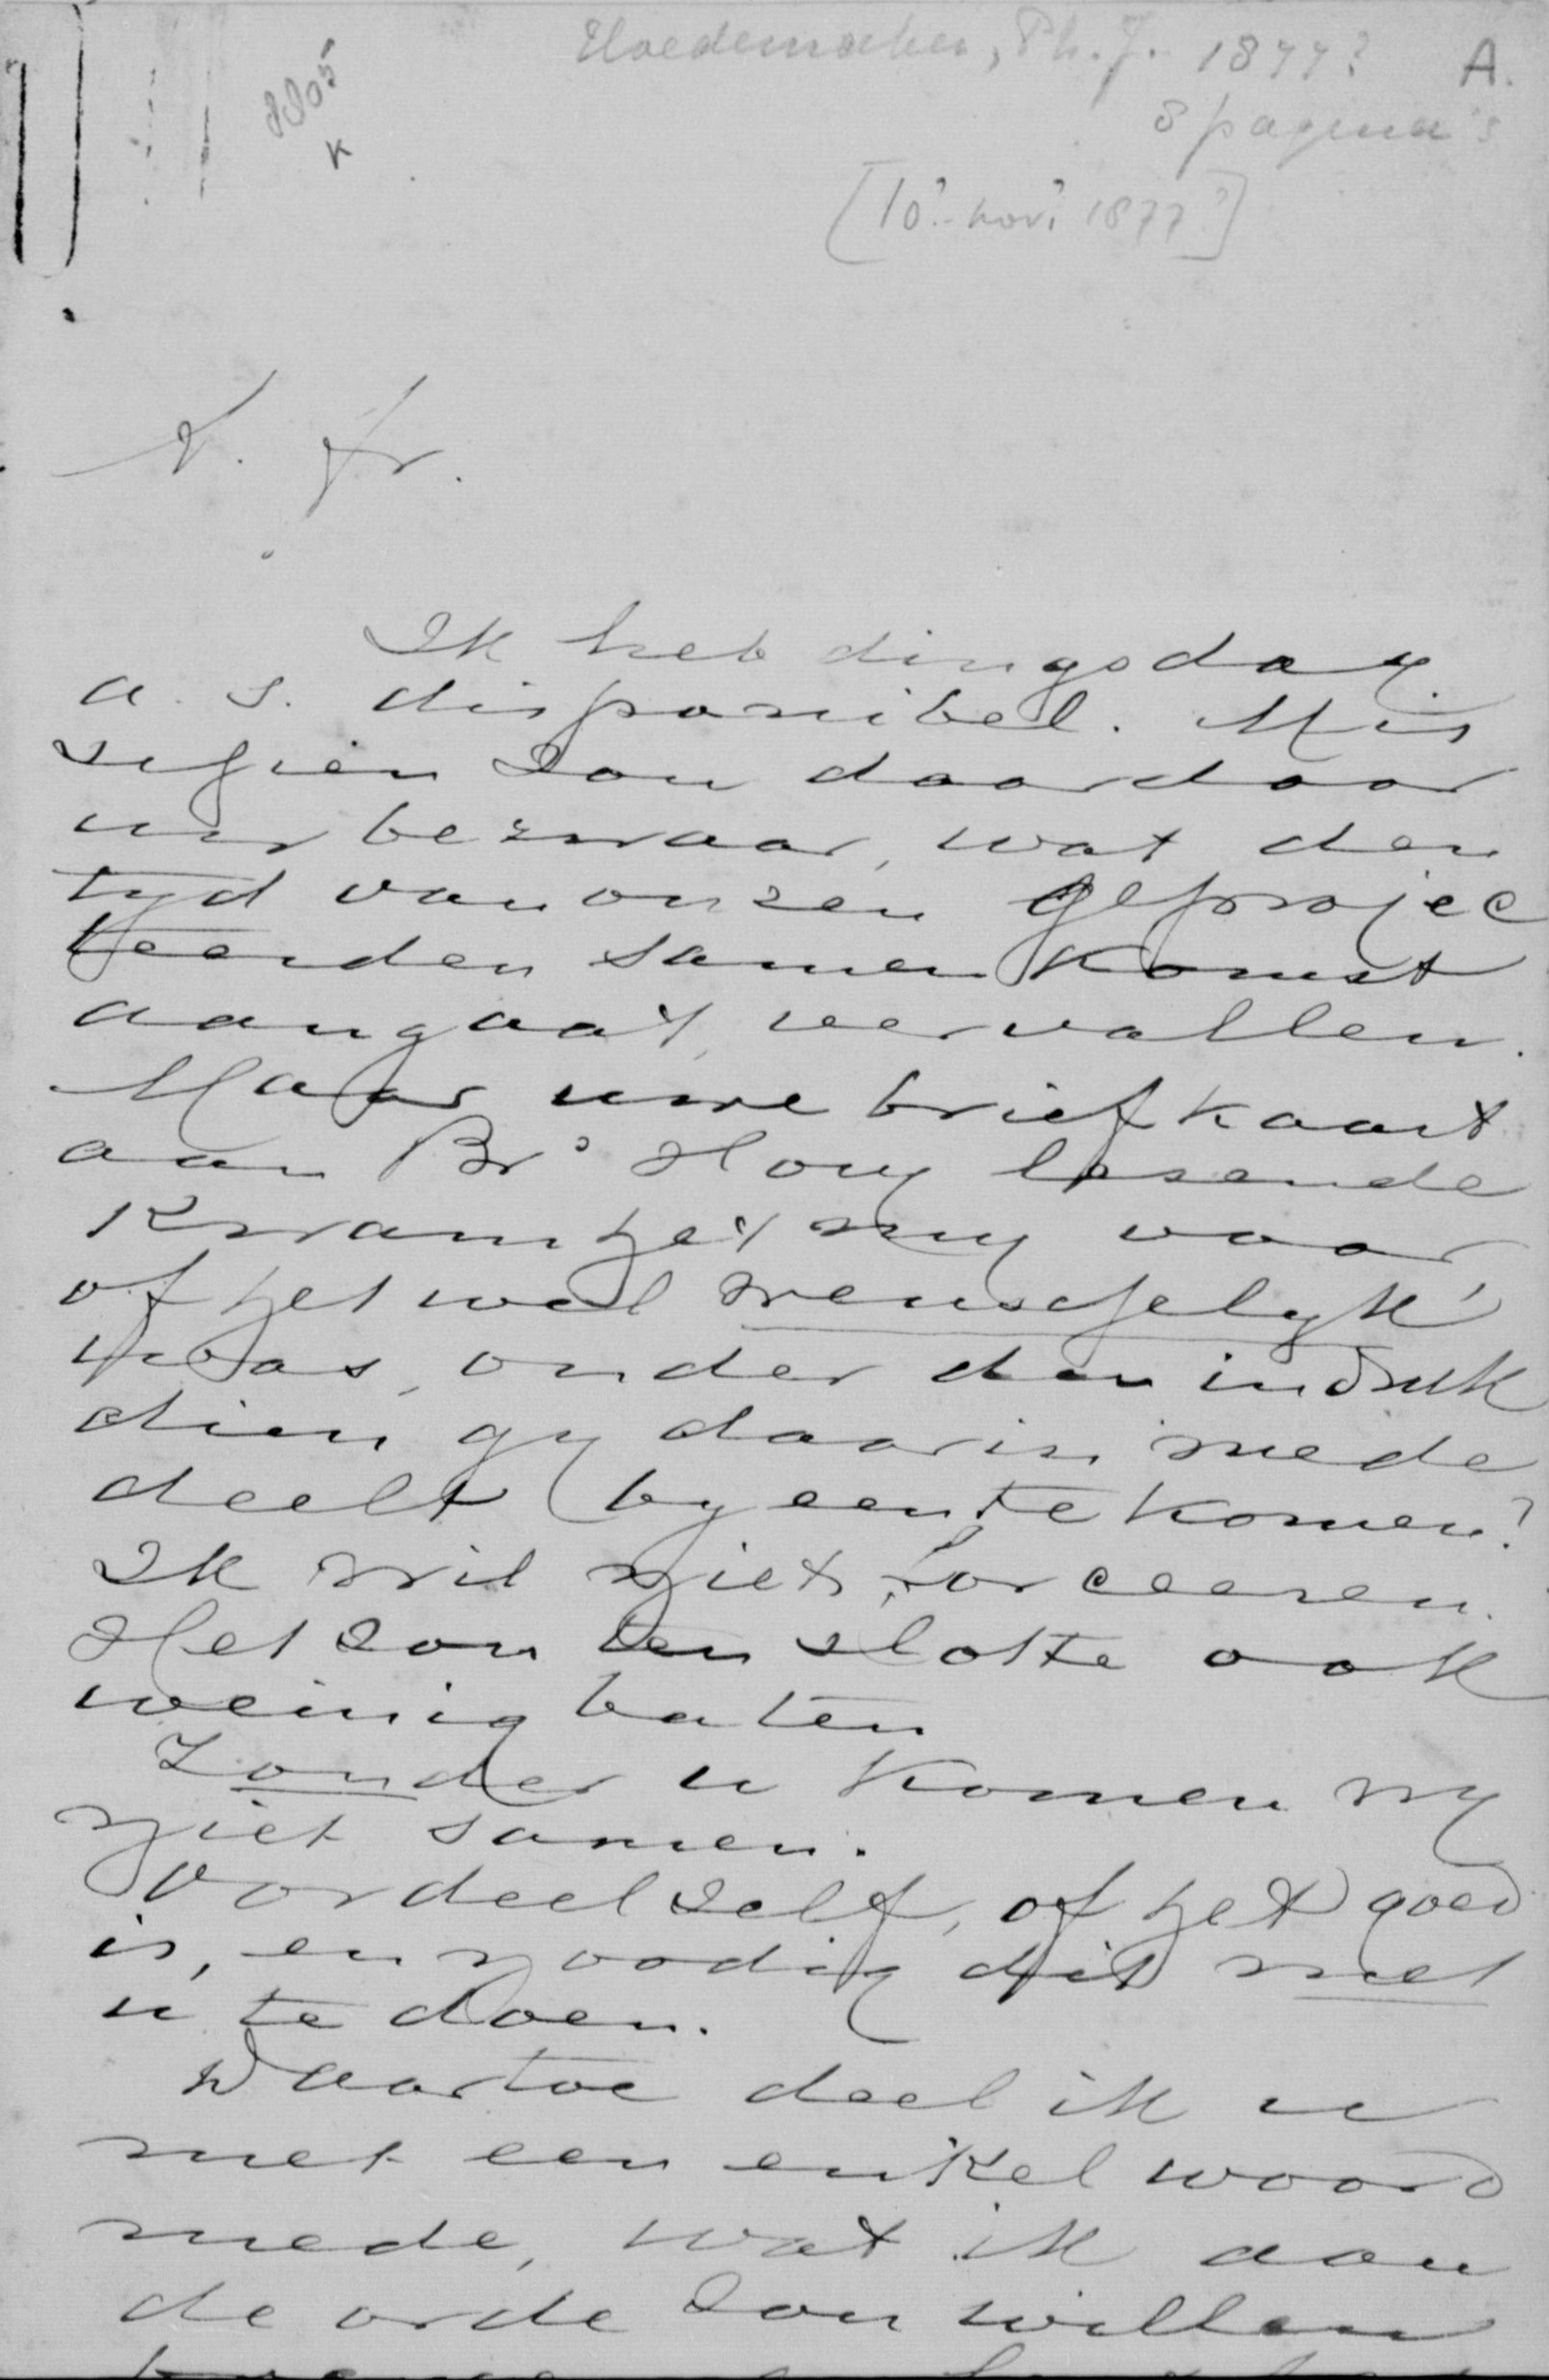 Hoedemaker, Ph. J. 1877? A.
8 pagina's
[10? nov? 1877?]
K
V. Fr.
Ik heb dingsdag
a. s. disponibel. Mis
schien zou daardoor
uw bezwaar, wat den
tyd van onzen geprojec
teerden samenkomst
aangaat, vervallen.
Maar uwe briefkaart
aan Br. Hovy lezende
kwam het my voor
of het wel wenschelyk
was, onder den indruk
dien gy daarin mede
deelt byeen te komen?
Ik wil niets forceeren.
Het zou ten slotte ook
weinig baten
Zonder u komen wy
niet samen.
Oordeel zelf, of het goed
is, en noodig dit met
u te doen.
Daartoe deel ik u
met een enkel woord
mede, wat ik aan
de orde zou willen